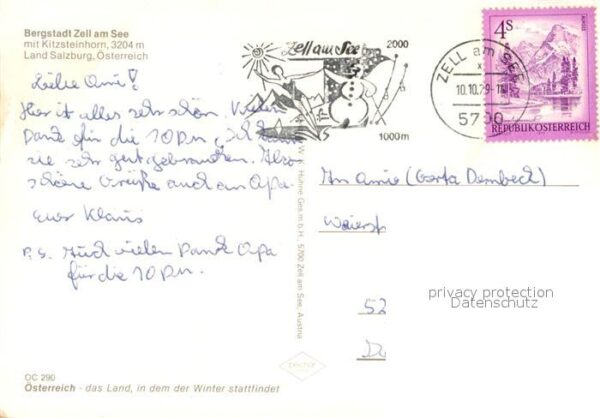 Bergstadt Zell am See
mit Kitzsteinhorn, 3204 m
Land Salzburg, Österreich
Liebe Omi!
Hier ist alles sehr schön. Vielen
Dank für die 10 DM, Ich kann
sie sehr gut gebrauchen. Also
schöne Grüße auch an Opa.
Euer Klaus
P.S. Auch vielen Dank Opa
für die 10 DM.
OC 290
Österreich - das Land, in dem der Winter stattfindet
W. K. Huhne Ges. m. b. H., 5700 Zell am See, Austria
Zell am See
2000
1000m
ZELL am SEE
x
10.10.79-11
5700
4S
REPUBLIK ÖSTERREICH
An Omi (Gerta Dembeck)
52
privacy protection
Datenschutz